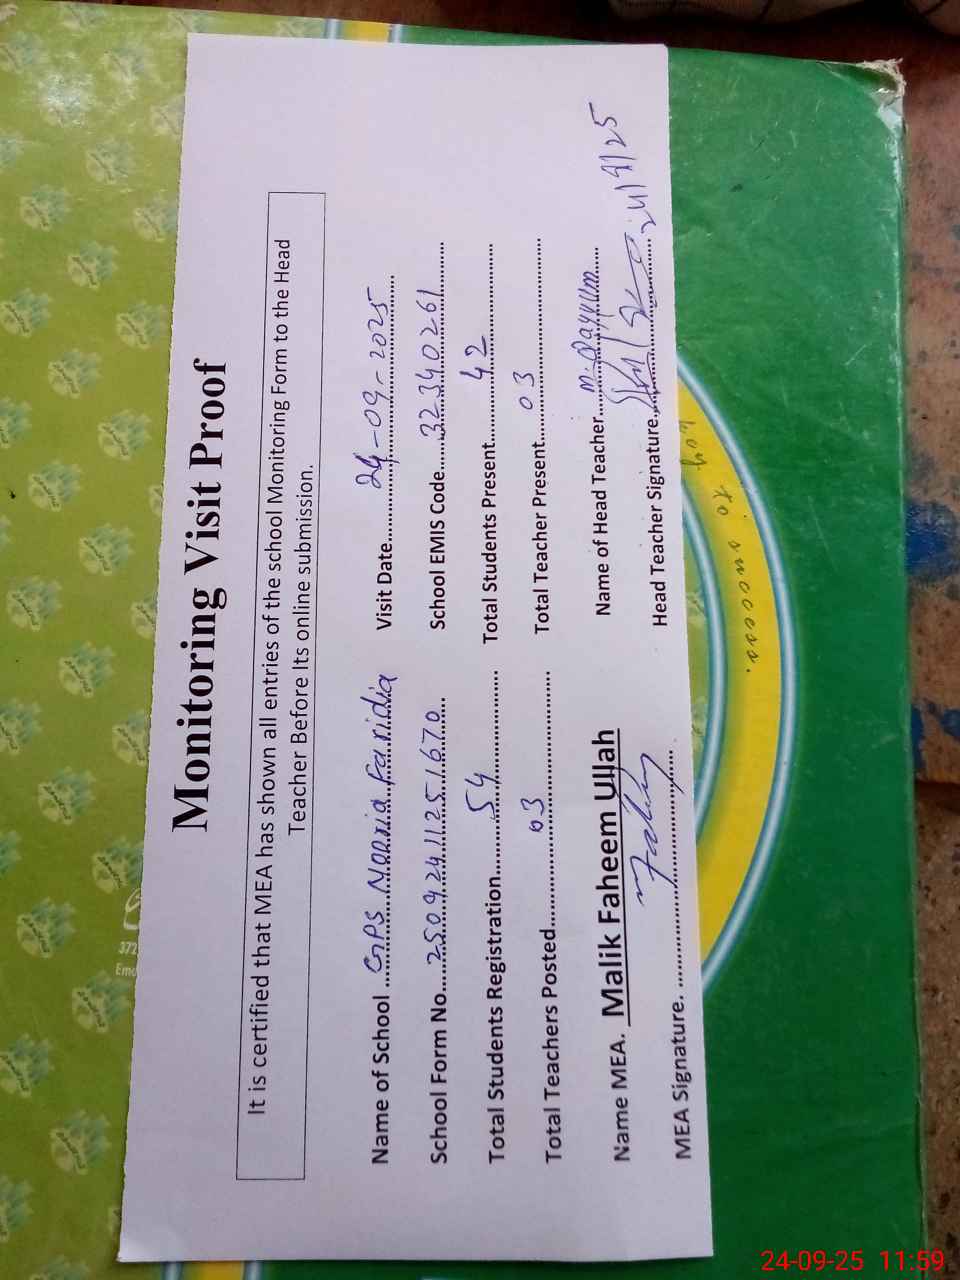 Monitoring Visit Proof
It is certified that MEA has shown all entries of the school Monitoring Form to the Head
Teacher Before Its online submission.
Name of School ...GPS Nooria Faridia Visit Date........24-09-2025
School Form No....25092411251670 School EMIS Code......32340261
Total Students Registration.........54 Total Students Present.........42
Total Teachers Posted.........03 Total Teacher Present.........03
Name MEA. Malik Faheem Ullah Name of Head Teacher...M. Qayyum
MEA Signature. Head Teacher Signature. 24/9/25
to success.
372
24-09-25 11:59